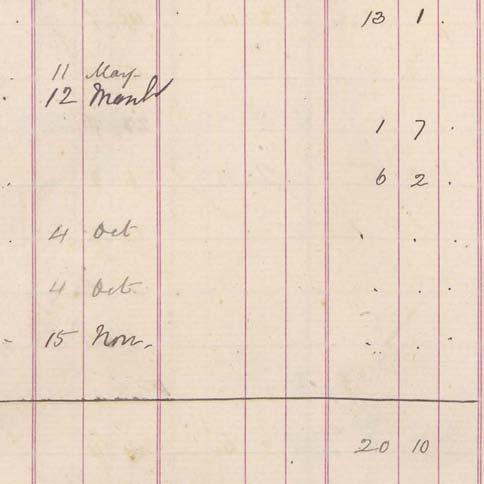 13 1 .
11 May
12 March
1 7 .
6 2 .
4 Oct . . .
4 Oct . . .
15 Nov. . . .
20 10